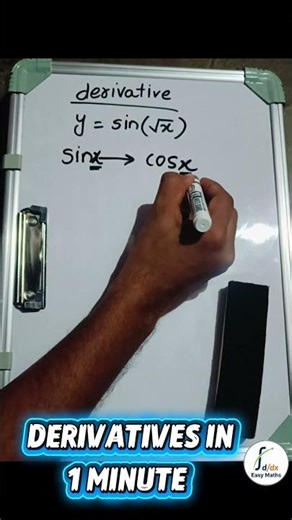 derivative
y = sin(√x)
sinx → cosx
DERIVATIVES IN
1 MINUTE
d/dx
Easy Maths